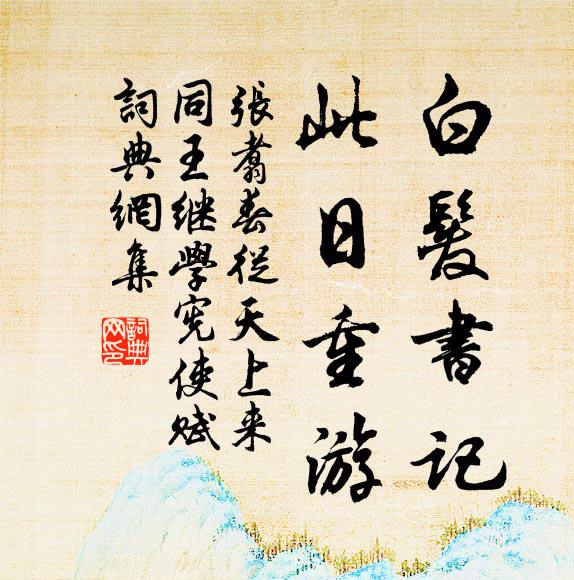 白髮書記
此日重游
張翥春從天上来
同王继學宪使赋
詞典網集
詞典网印